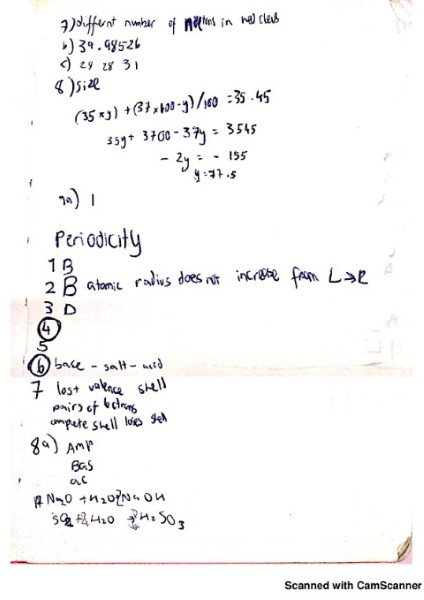 7) different number of in nucleus
b) 39.98526
c) 29 28 31
8) size
(35 × y) + (37 × 100 - y) / 100 = 35.45
35y + 3700 - 37y = 3545
- 2y = - 155
y = 77.5
9a) 1
Periodicity
1 B
2 B atomic radius does not increase from L → R
3 D
4
5
6 base - salt - acid
7 lost valence shell
pairs of
shell
8a) AMP
BAS
ac
Na2O + H2O NaOH
H2O → H2SO3
Scanned with CamScanner